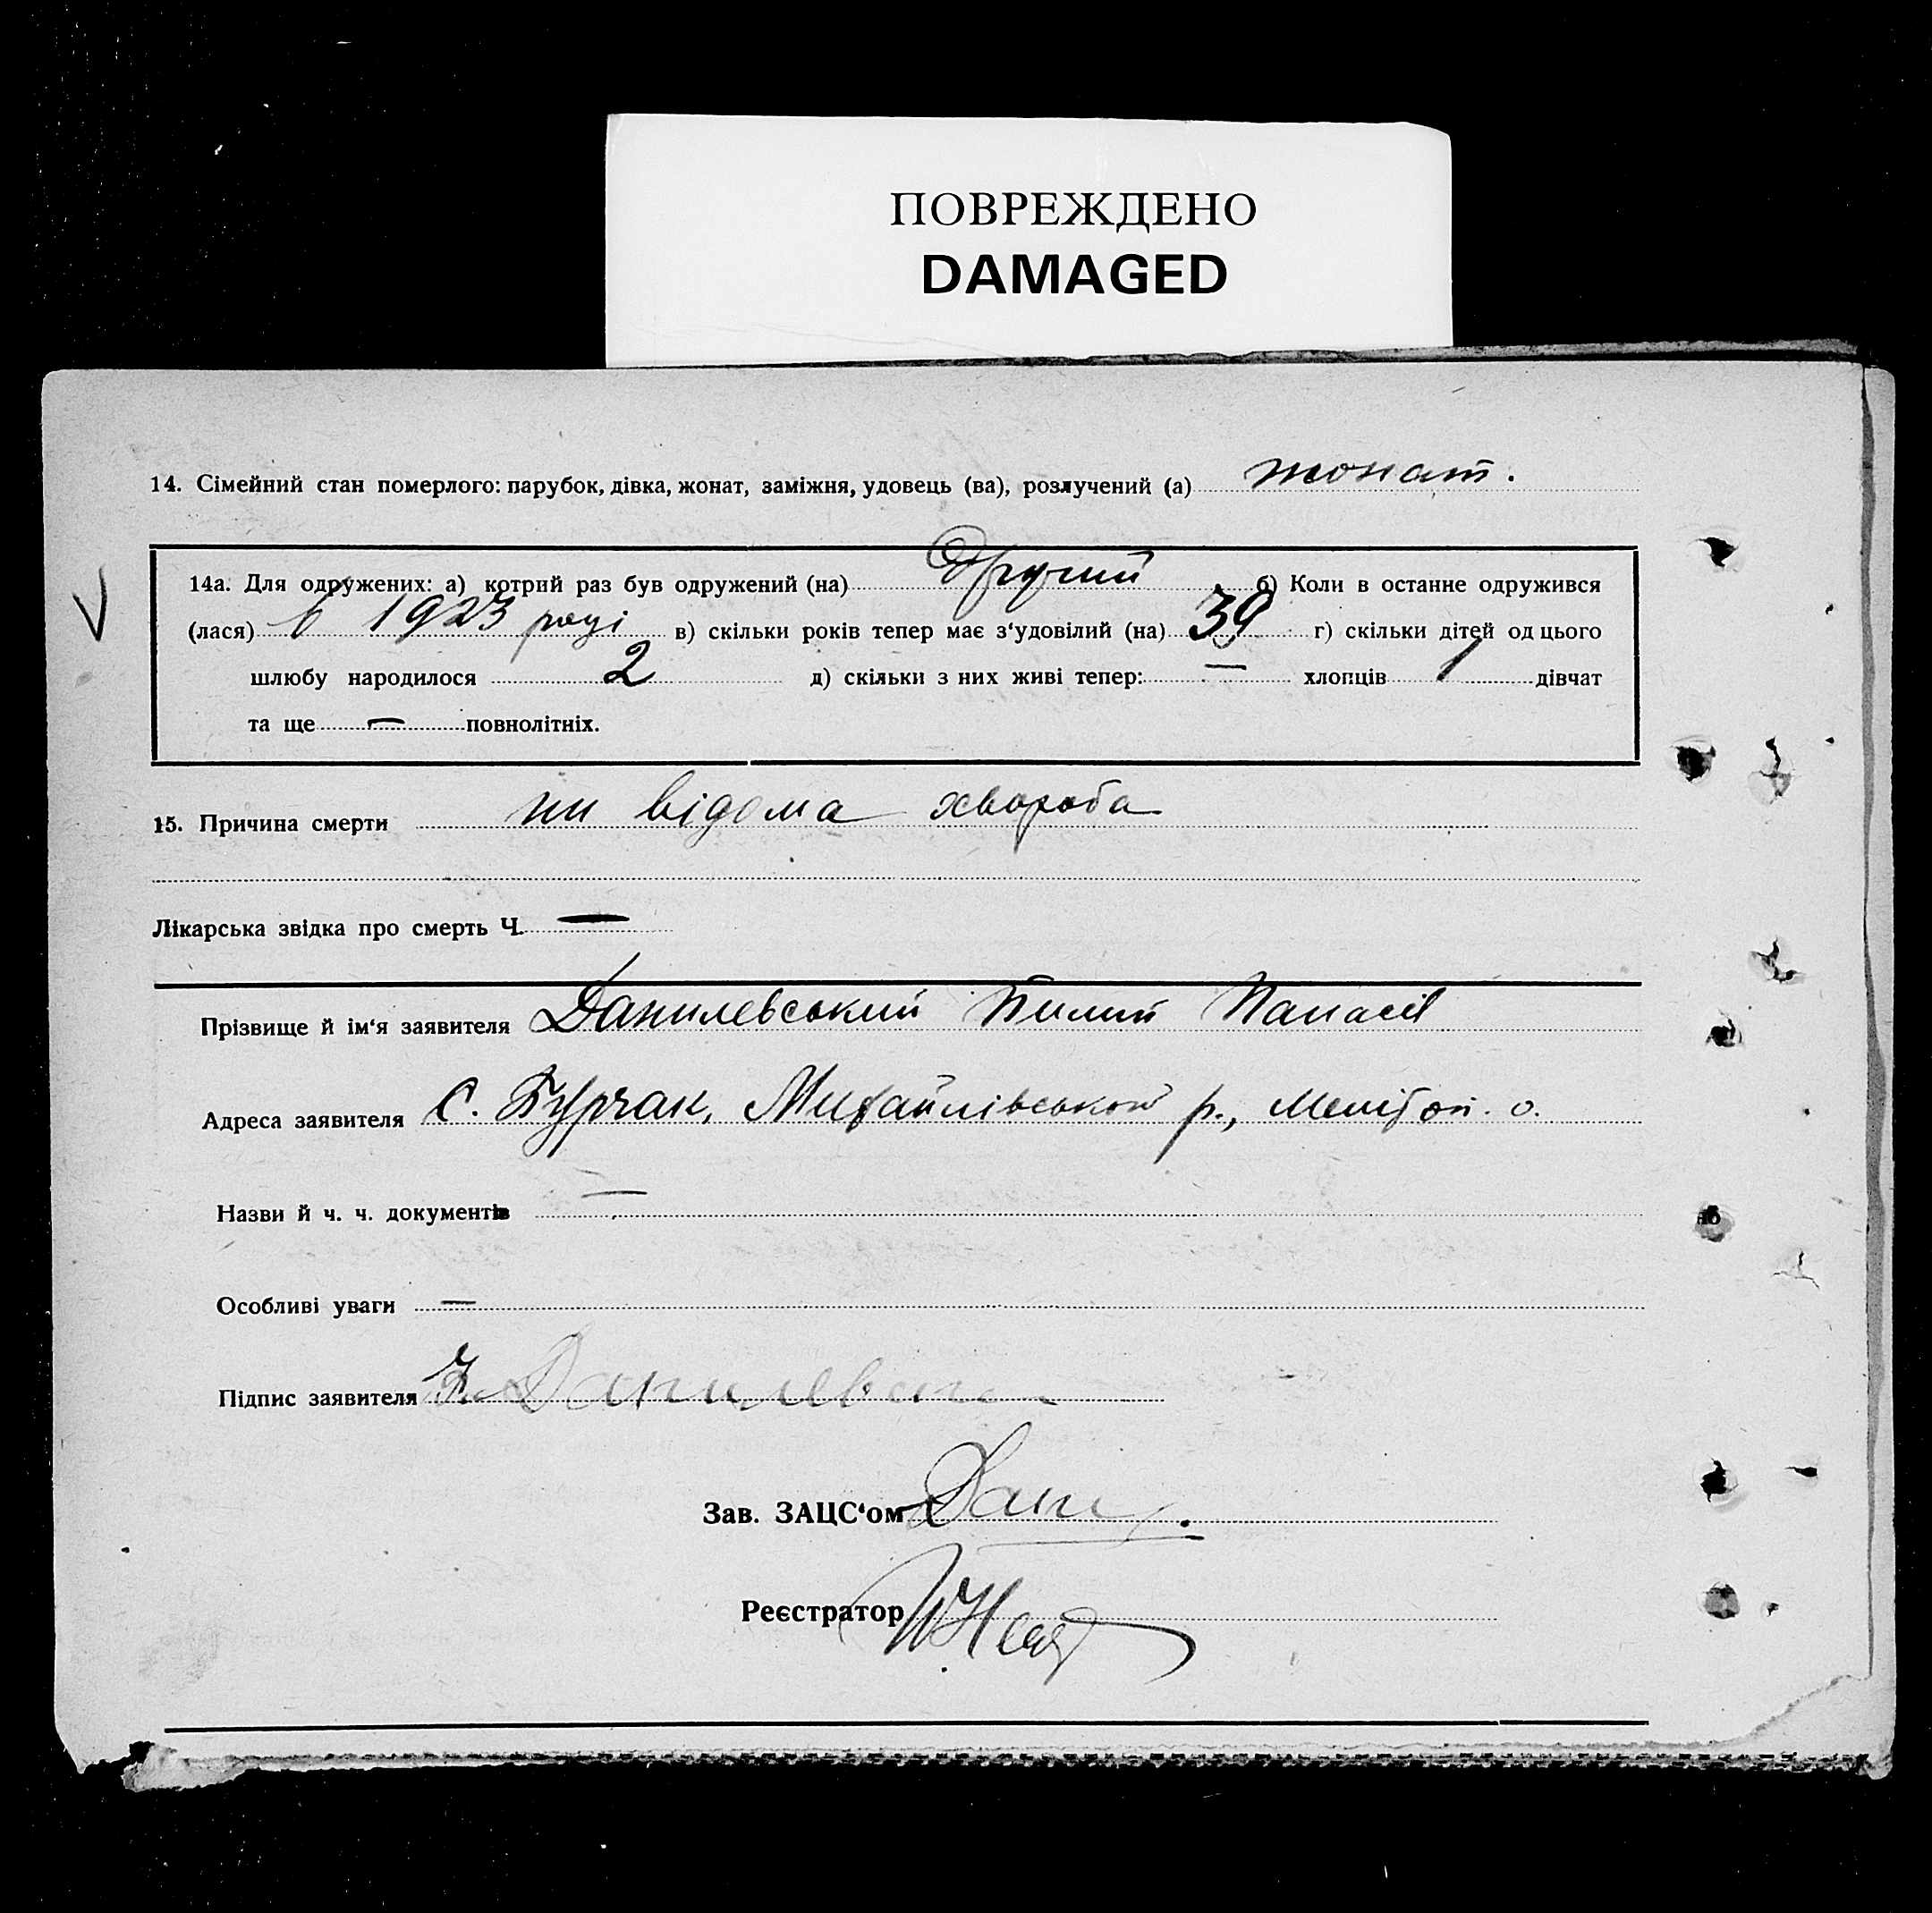 ПОВРЕЖДЕНО
DAMAGED
14. Сімейний стан померлого: парубок, дівка, жонат, заміжня, удовець (ва), розлучений (а) жонат.
14а. Для одружених: а) котрий раз був одружений (на) Другий б) Коли в останне одружився
(лася) в 1923 році в) скільки років тепер має з‘удовілий (на) 39 г) скільки дітей од цього
шлюбу народилося 2 д) скільки з них живі тепер: — хлопців 1 дівчат
та ще — повнолітніх.
15. Причина смерти ни відома хвороба
Лікарська звідка про смерть Ч. —
Прізвище й ім‘я заявителя Данилевський Пилип Панасів
Адреса заявителя С. Бурчак, Михайлівської р., Мелітоп. о.
Назви й ч. ч. документів —
Особливі уваги —
Підпис заявителя Данилевськ
Зав. ЗАЦС‘ом
Реєстратор